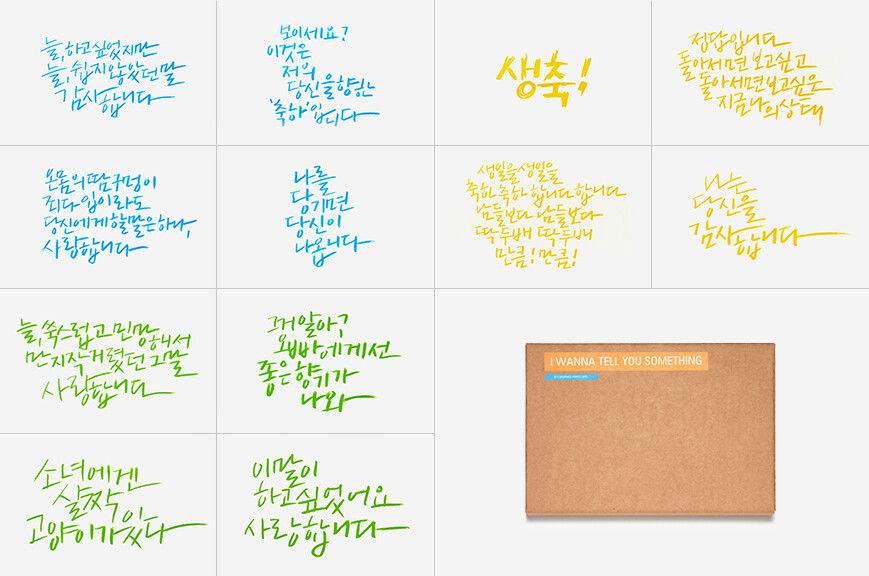 늘, 하고싶었지만
늘, 쉽지않았던말
감사합니다
보이세요?
이것은
저의
당신을향한
'축하'입니다
생축!
정답입니다
돌아서면 보고싶고
돌아서면보고싶은
지금나의상태
온몸의땀구멍이
죄다입이라도
당신에게할말은하나,
사랑합니다
나를
당기면
당신이
나옵니다
생일을생일을
축하 축하 합니다 합니다
남들보다 남들보다
딱두배 딱두배
만큼! 만큼!
나는
당신을
감사합니다
늘,쑥스럽고민망해서
만지작거렸던그말
사랑합니다
그거알아?
오빠에게선
좋은향기가
나와
I WANNA TELL YOU SOMETHING
소녀에겐
살짝
고양이가있다
이말이
하고싶었어요
사랑합니다